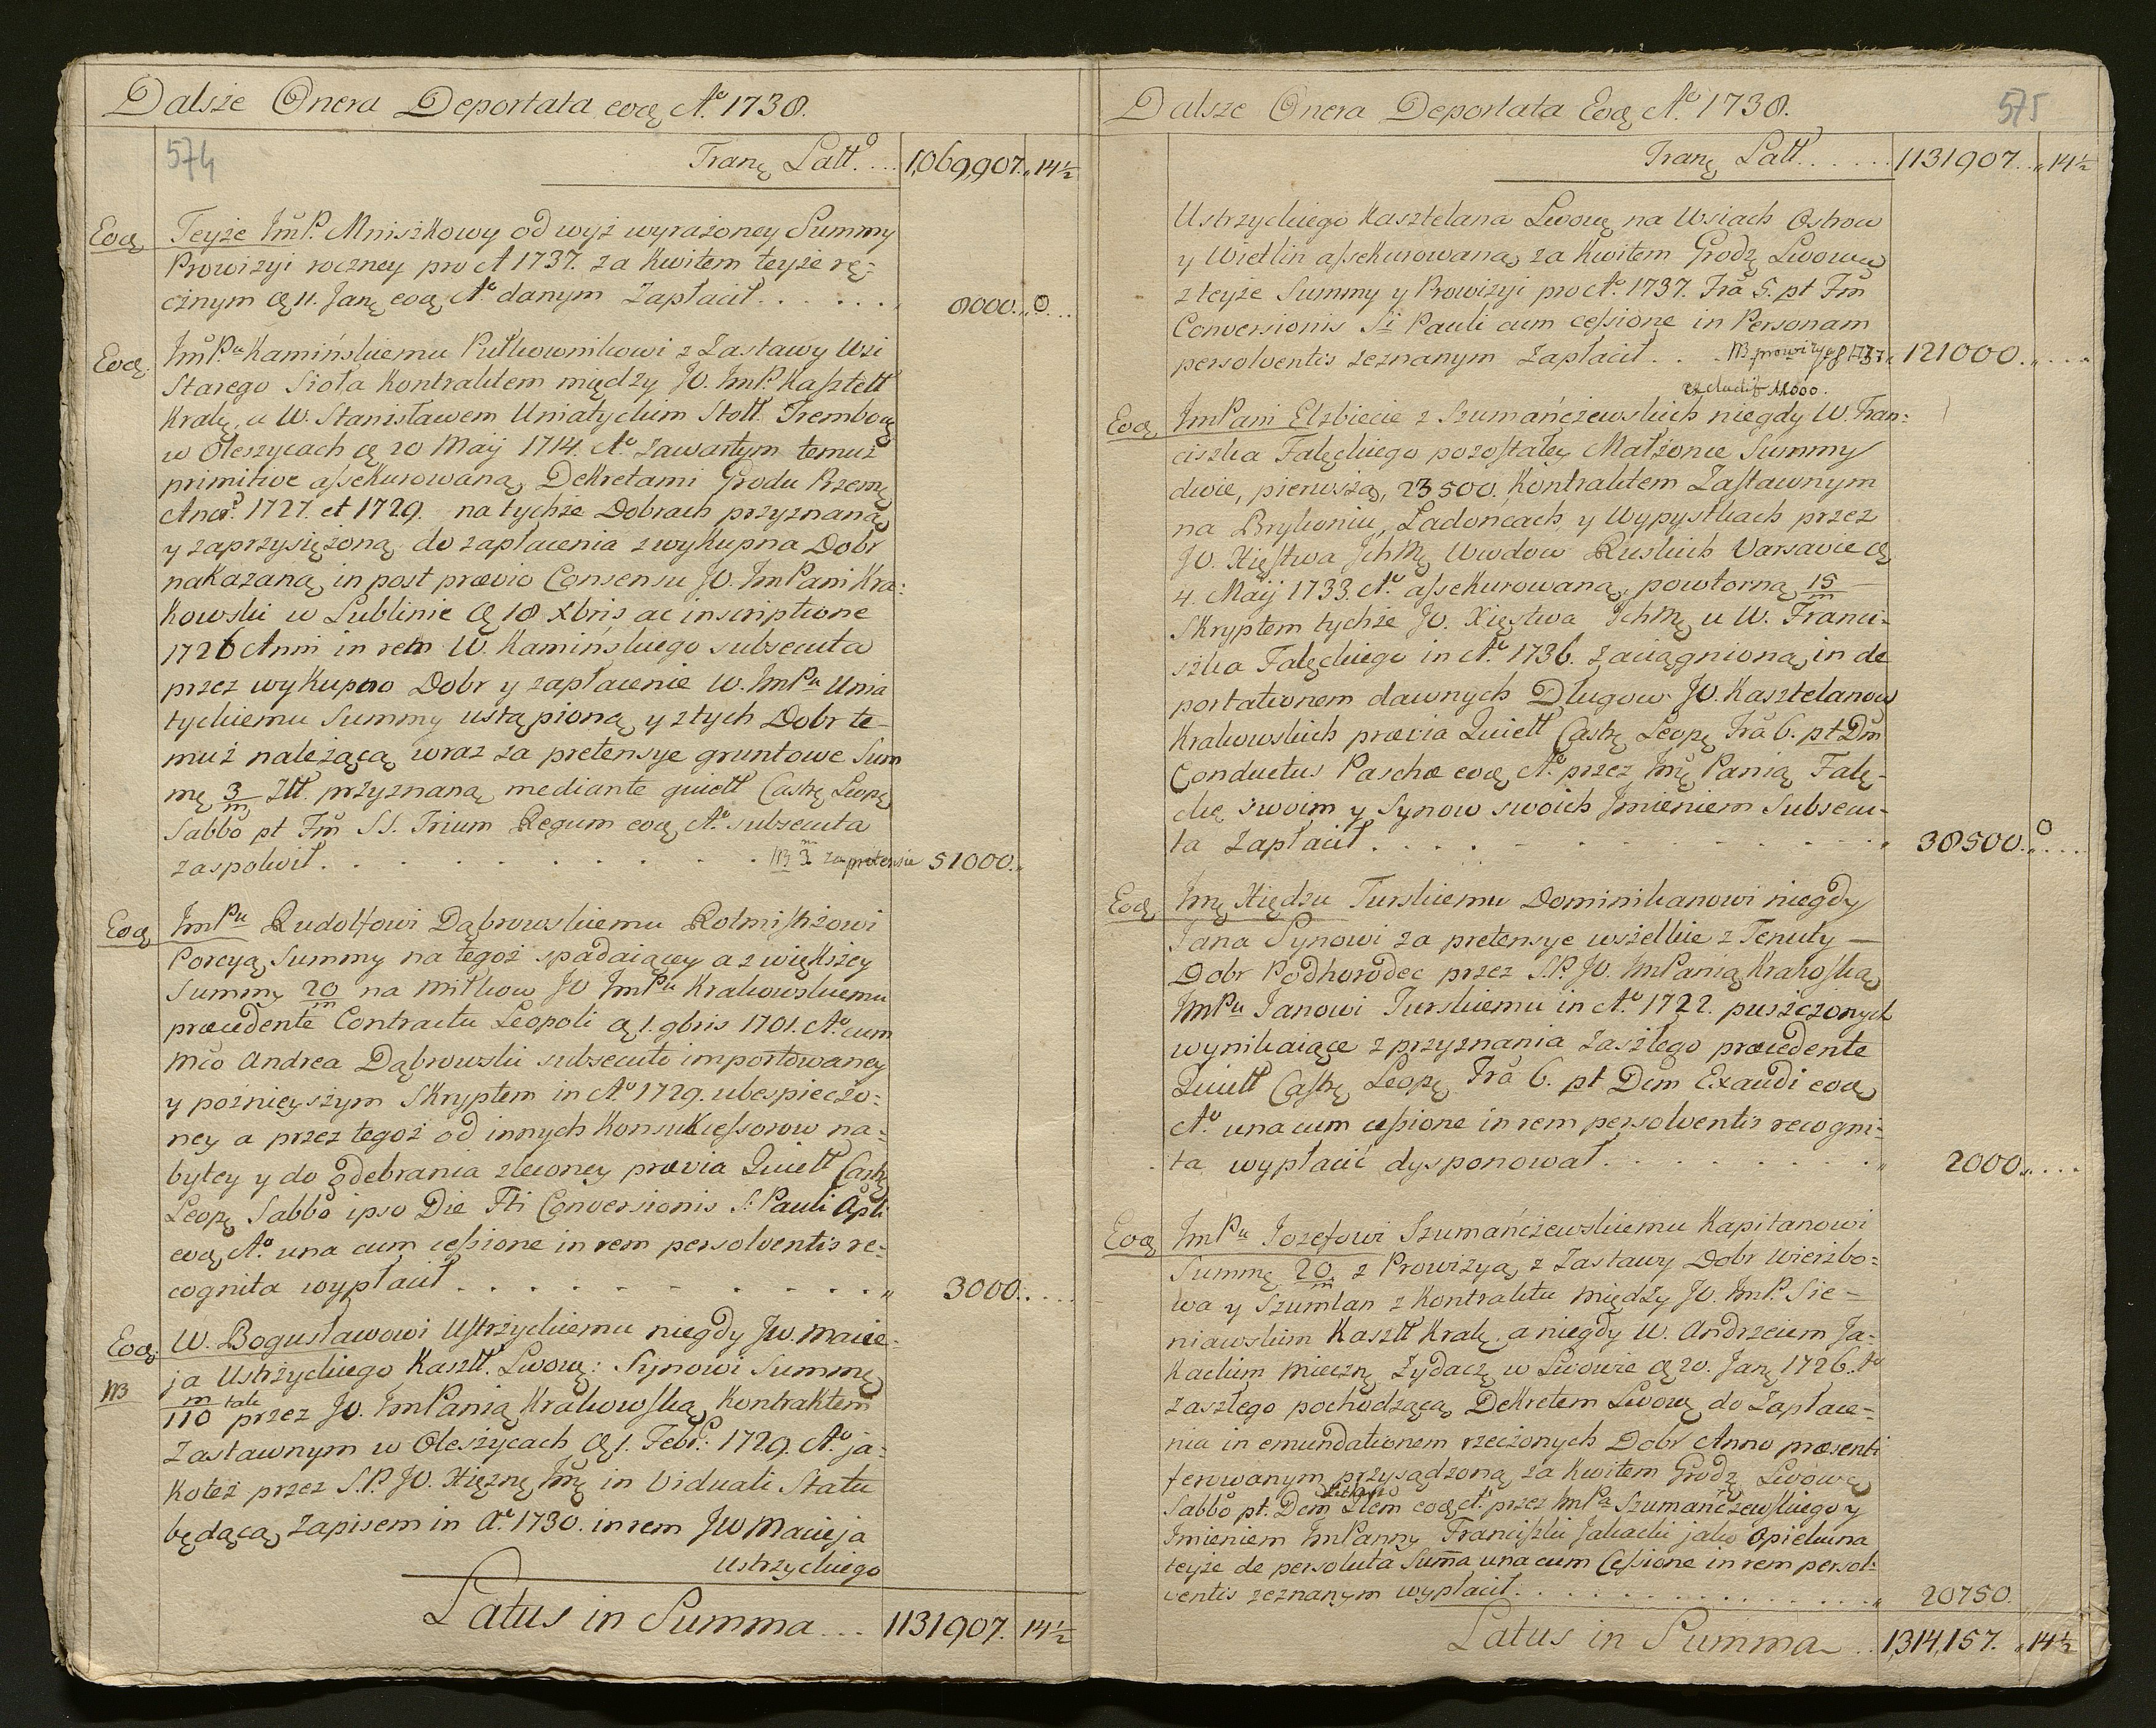 Dalsze Onera Deportata eoq̨ Ao. 1738.
574
Tranę Latt. . . . 1,069,907. „ 14½
Eoq̨ Teyże JmP. Mniszkowy od wyż wyrażoney Summy
Prowizyi roczney pro A 1737. za Kwitem teyże rę-
cznym q̨ 11. Janę eoq̨ Ao. danym Zapłacił . . . . . . 8000. „ 0 . . .
Eoq̨. JmPu Kamińskiemu Pułkownikowi z Zastawy Wsi
Starego Sioła Kontraktem między JW. JmP. Kasztell
Krakę, a W. Stanisławem Uniatyckim Stoll. Trembowę
w Oleszycach q̨ 20 Maij 1714. Ao. zawartym temuż
primitive assekurowaną, Dekretami Grodu Przemę
Anor. 1727. et 1729. na tychże Dobrach przyznaną
y zaprzysiężoną do zapłacenia z wykupna Dobr
nakazaną, in post prævio Consensu JW. JmPani Kra:
Kowski w Lublinie q̨ 18 Xbris ac inscriptione
1726 Anni in rem W. Kamińskiego subsecuta
przez wykupno Dobr y zapłacenie W. JmPu Unia
tyckiemu Summy ustąpioną, y z tych Dobr te-
muż należącą, wraz za pretensye gruntowe Sum
mę 3/m Złł. przyznaną mediante quiett Castrę Leopę
Sabbo pt Fm SS. Trium Regum eoq̨ Ao. subsecuta
zaspokoił . . . . . . . . . . NB 3m za pretensie 51000. „
Eoq̨ JmPu Rudolfowi Dąbrowskiemu Rotmistrzowi
Porcyą Summy na tegoż spadaiącey a z większey
Summy 20/m na Mitkow JW JmPu Krakowskiemu
præcedente Contractu Leopoli q̨ 1. 9bris 1701. Ao. cum
Mco Andrea Dąbrowski subsecuto importowaney
y poznieyszym Skryptem in Ao 1729. ubespieczo:
ney a przez tegoż od innych Konsukcessorow na:
bytey y do odebrania zleconey prævia Quiett Castrę
Leopę Sabbo ipso Die Fti Conversionis S. Pauli Apli
eoq̨ Ao. una cum cessione in rem persolventis re:
cognita wypłacił . . . . . . . . . . „ 3000. . . . .
Eoq̨. W. Bogusławowi Ustrzyckiemu niegdy JW. Macie-
NB ja Ustrzyckiego Kasztł. Lwowę: Synowi Summę
m/110 talę przez JW. JmPanią Krakowską Kontraktem
Zastawnym w Oleszycach q̨ 1. Febr: 1729. Ao. ja:
koteż przez S.P. JW. Xiężnę Jmę in Viduali Statu
będącą, Zapisem in Ao. 1730. in rem JW Macieja
Ustrzyckiego
Latus in Summa . . . 1131907. 14½
Dalsze Onera Deportata Eoq̨ Ao. 1738.
575
Tranę Latt. . . . . . 1131907. . „ 14½
Ustrzyckiego Kasztelana Lwowę na Wsiach Ostrow
y Wietlin assekurowaną, za Kwitem Grodz Lwowę
z teyże Summy y Prowizyi pro Ao. 1737. Fra 5. pt Fm
Conversionis Si Pauli cum cessione in Personam
persolventis zeznanym Zapłacił . . . NB prowizya 1737. 121000. „ . . „
excludit 11000.
Eoq̨ JmPani Elzbiecie z Szumańczewskich niegdy W. Fran:
ciszka Falęckiego pozostałey Małżonce Summy
dwie, pierwszą, 23500. Kontraktem Zastawnym
na Brykoniu, Ladońcach, y Wypyskach przez
JW. Xięstwa Jchmę Wwdow Ruskich Varsavie q̨
4. Maij 1733. Ao. assekurowaną, powtorną 15/m
Skryptem tychże JW. Xięstwa Jchmę u W. Franci-
szka Falęckiego in Ao. 1736. zaciągnioną, in de
portationem dawnych Długow JW. Kasztelanow
Krakowskich prævia Quiett Castrę Leopę Fra 6. pt Dm
Conductus Paschæ eoq̨ Ao. przez Jmę Panią Falę-
cką swoim y Synow swoich Jmieniem Subsecu-
ta Zapłacił . . . . . . . . . . . „ 38500. „ 0 . . .
Eoq̨ Jmę Xiędzu Turskiemu Dominikanowi niegdy
Jana Synowi za pretensye wszelkie z Tenuty —
Dobr Podhorodec przez S.P. JW. JmPanią Krakoską
JmPu Janowi Turskiemu in Ao. 1722. puszczonych
wynikaiące z przyznania Zaszłego præcedente
Quiett Castrę Leopę Fra 6. pt Dcm Exaudi eoq̨
Ao. una cum cessione in rem persolventis recogni-
ta, wypłacić dysponował . . . . . . . . „ 2000. „ . . . .
Eoq̨ JmPu Jozefowi Szumańczewskiemu Kapitanowi
Summę 20/m z Prowizyą, z Zastawy Dobr Wierzbo:
wa y Szumlan z Kontraktu między JW. JmP. Sie-
niawskim Kasztł Krakę. a niegdy W. Andrzeiem Ja-
Kackim Mieczn. Żydacz. w Lwowie q̨ 20. Janę 1726. Ao
Zaszłego pochodzącą, Dekretem Lwowę do Zapłace-
nia in emundationem rzeczonych Dobr Anno præsenti
ferowanym przysądzoną, za Kwitem Grodz. Lwowę
Sabbo pt. Dcm Lætare eoq̨ Ao. przez JmPa Szumańczewskiego y
Jmieniem JmPanny Franciszki Jakacki jako Opiekuna
teyże de persoluta Sum̃a una cum Cessione in rem persol:
ventis zeznanym wypłacił . . . . . . . . . . . „ 20750.
Latus in Summa . . 1,314,157. „ 14½